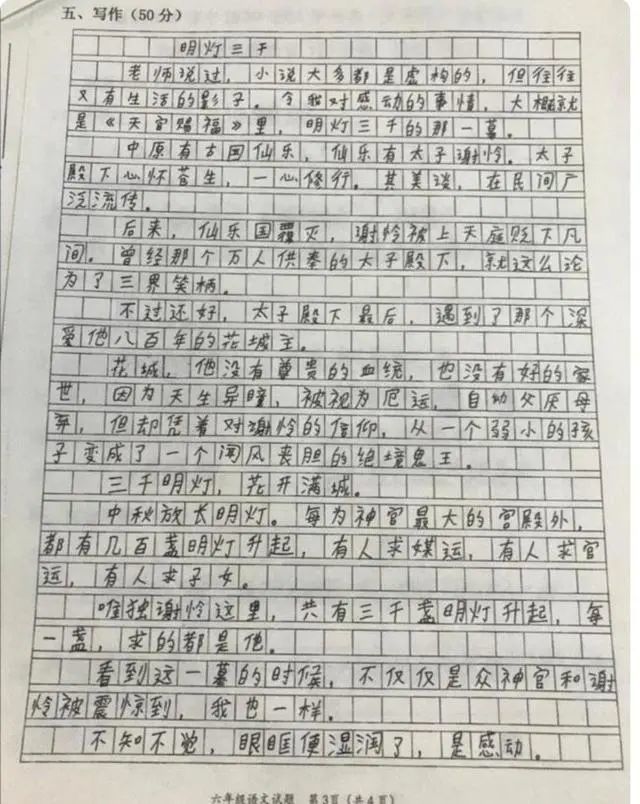 五、写作(50分)
明灯三千
老师说过，小说大多都是虚构的，但往往
又有生活的影子。令我对感动的事情，大概就
是《天官赐福》里，明灯三千的那一幕。
中原有古国仙乐，仙乐有太子谢怜。太子
殿下心怀苍生，一心修行。其美谈，在民间广
泛流传。
后来，仙乐国覆灭，谢怜被上天庭贬下凡
间。曾经那个万人供奉的太子殿下，就这么沦
为了三界笑柄。
不过还好，太子殿下最后，遇到了那个深
爱他八百年的花城主。
花城，他没有尊贵的血统，也没有好的家
世，因为天生异瞳，被视为厄运，自幼父厌母
弃，但却凭着对谢怜的信仰，从一个弱小的孩
子变成了一个闻风丧胆的绝境鬼王。
三千明灯，花开满城。
中秋放长明灯。每为神官最大的宫殿外，
都有几百盏明灯升起，有人求媒运，有人求官
运，有人求子女。
唯独谢怜这里，共有三千盏明灯升起，每
一盏，求的都是他。
看到这一幕的时候，不仅仅是众神官和谢
怜被震惊到，我也一样。
不知不觉，眼眶便湿润了，是感动。
六年级语文试题 第3页(共4页)